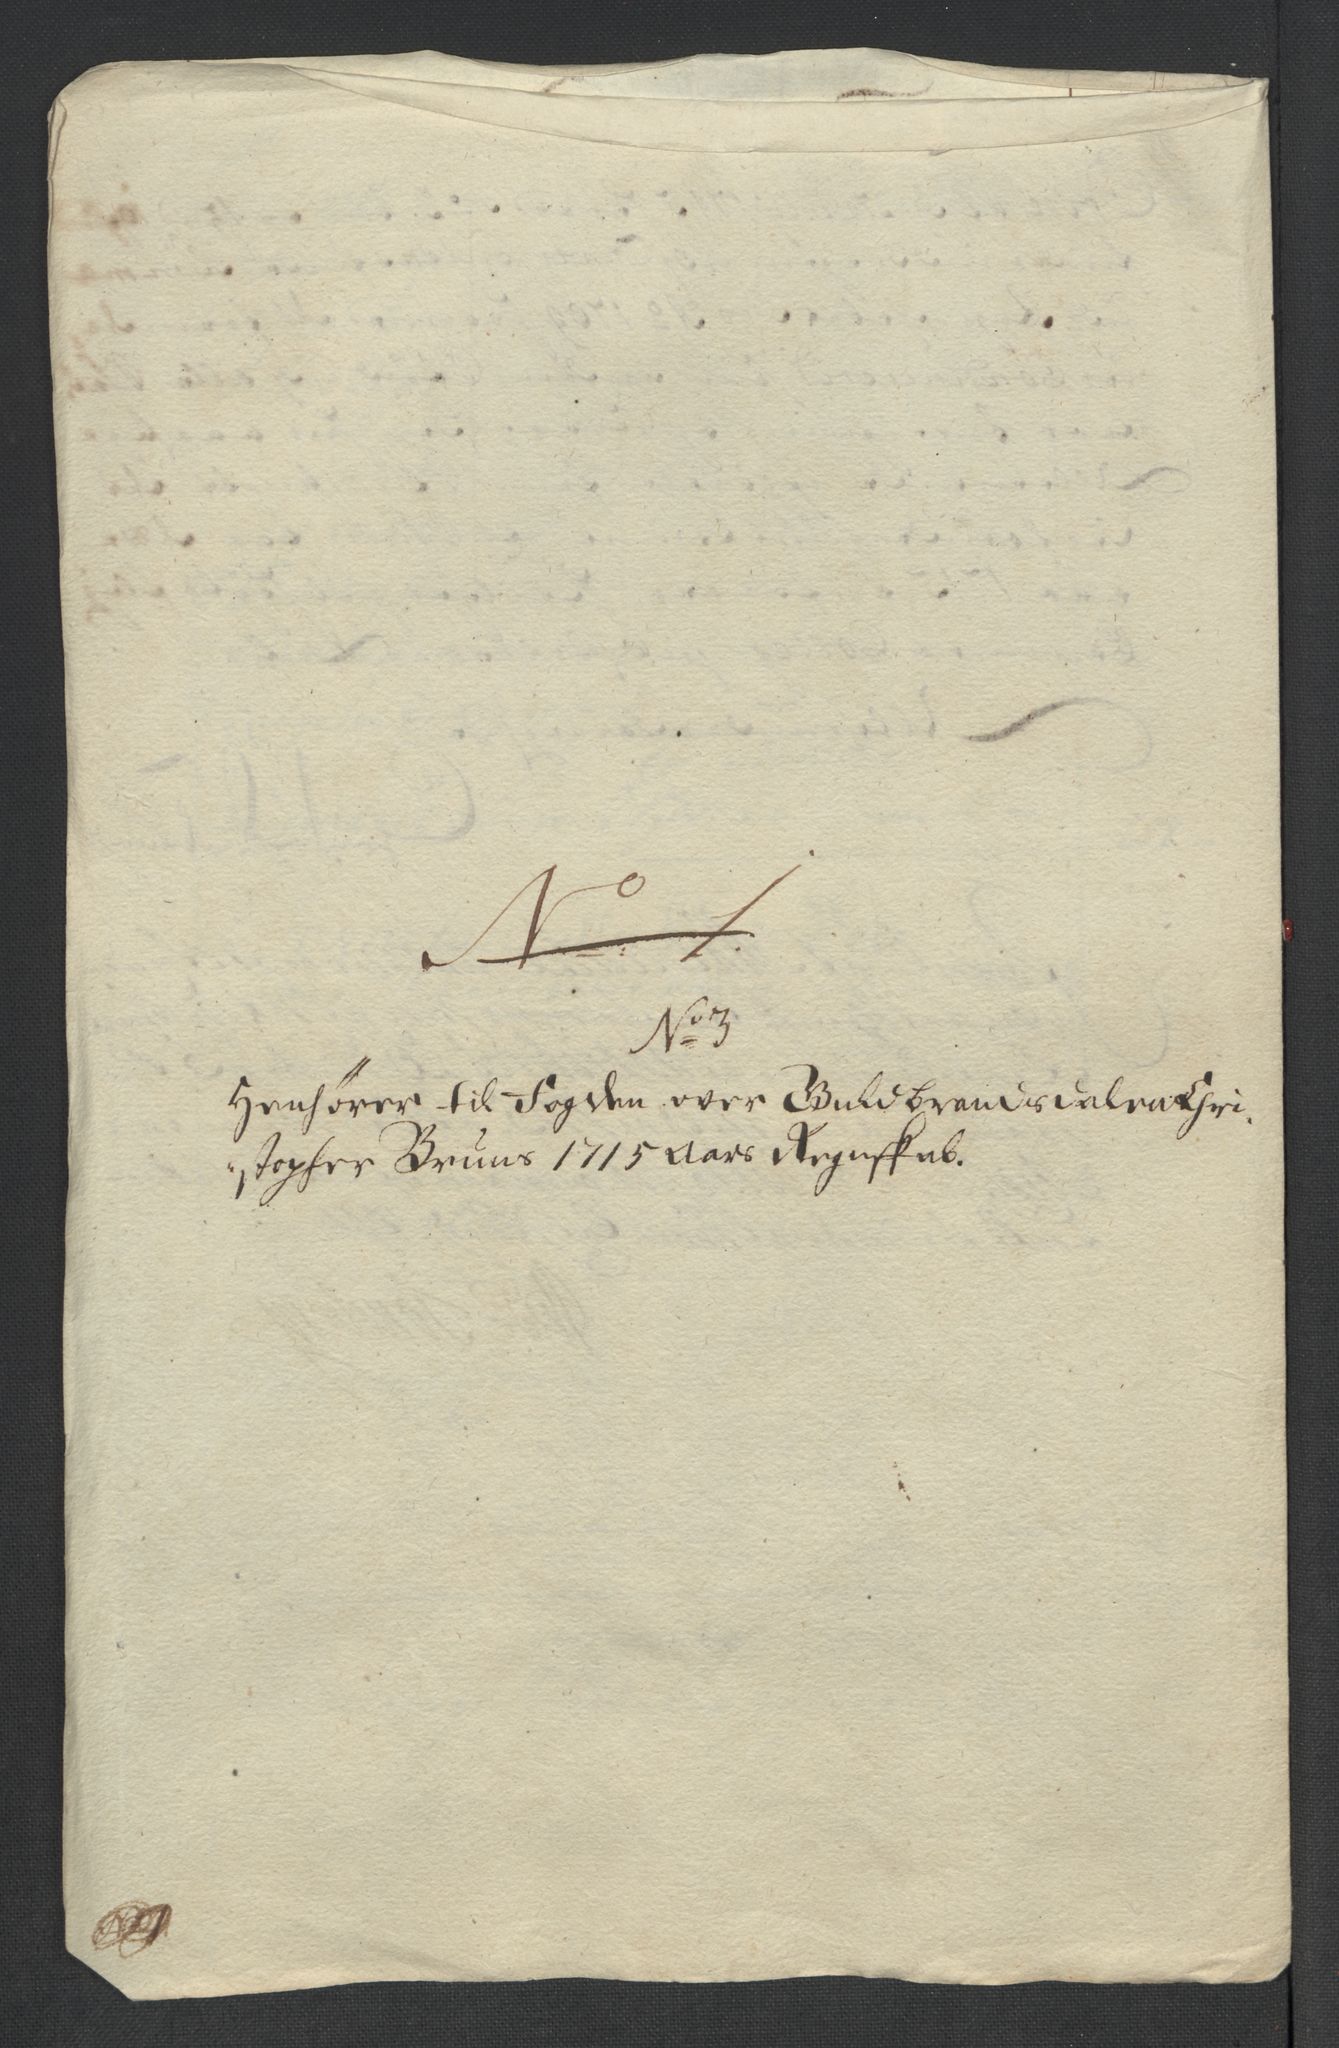 No 1.
No 3
Henhører til Fogden over Guldbrandsdalen Chri-
stopher Bruns 1715 Aars Regnskab.